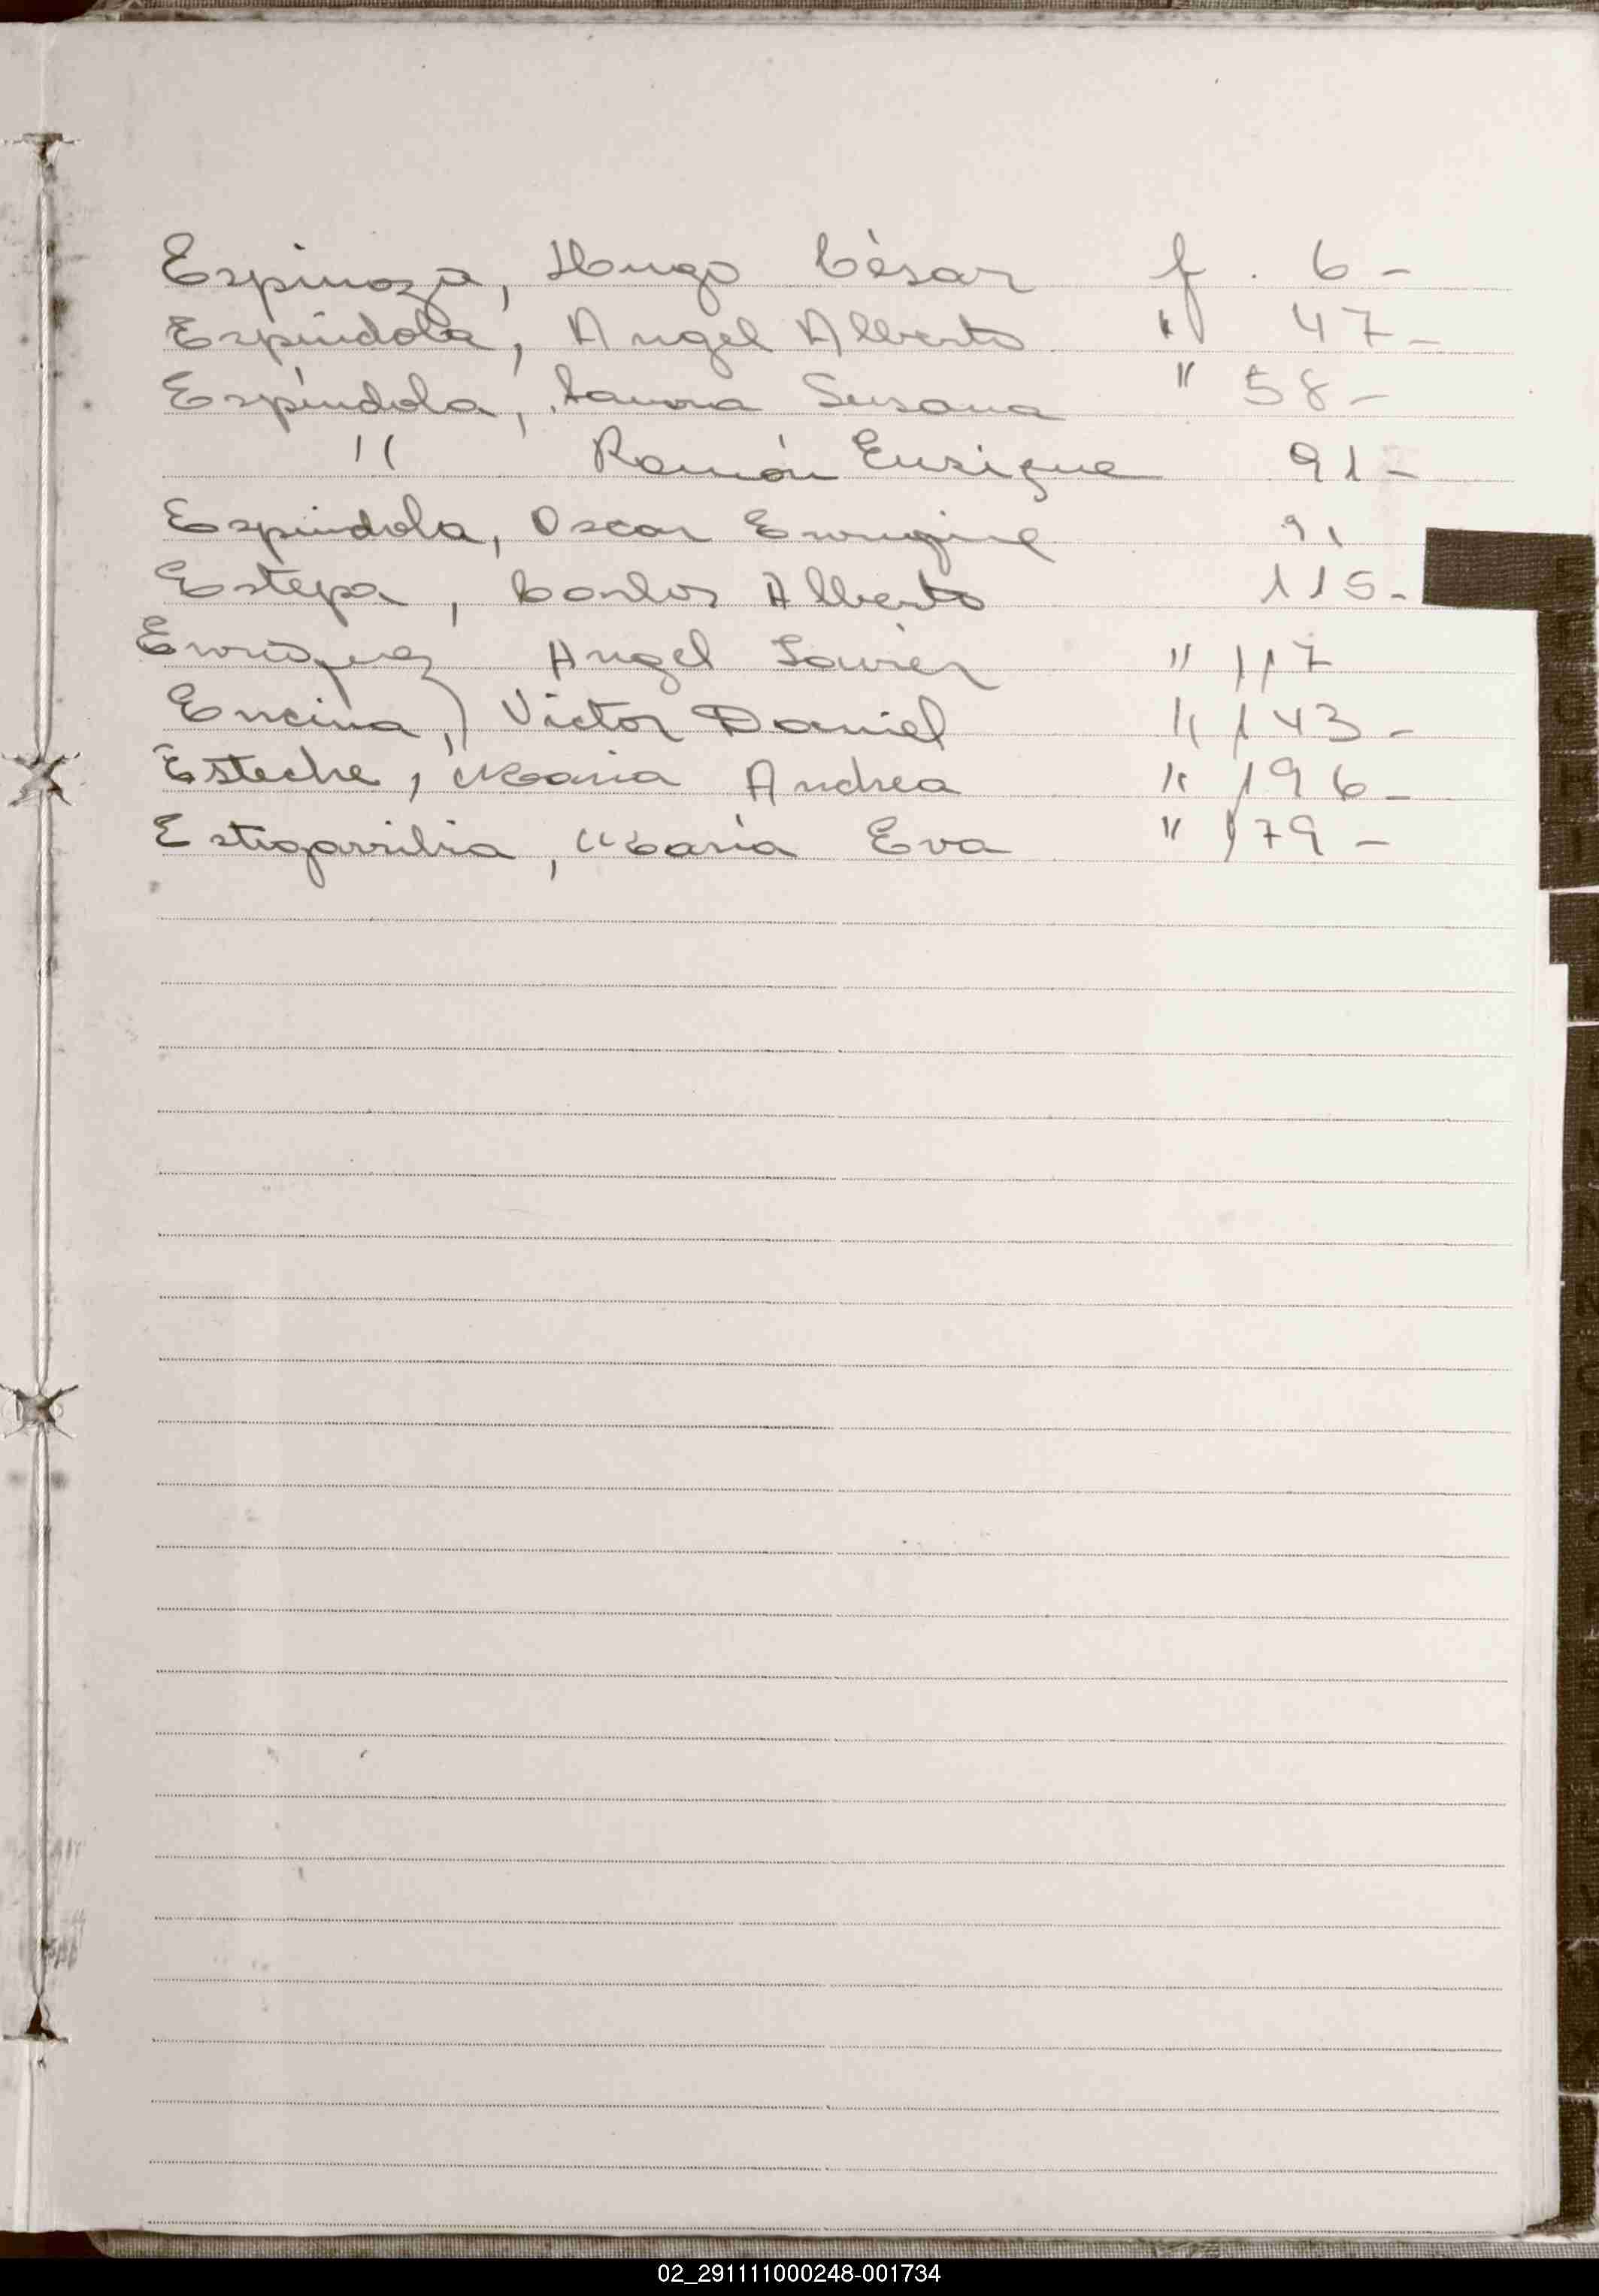 Espinoza, Hugo César f. 6-
Espíndola, Angel Alberto " 47-
Espíndola, Laura Susana " 58-
" Ramón Enrique 91-
Espíndola, Oscar Enrique 91
Estepa, Carlos Alberto 115-
Enriquez Angel Javier " 117
Encina, Victor Daniel " 143-
Esteche, Maria Andrea " 196-
Estigarribia, María Eva " 179-
02_291111000248-001734